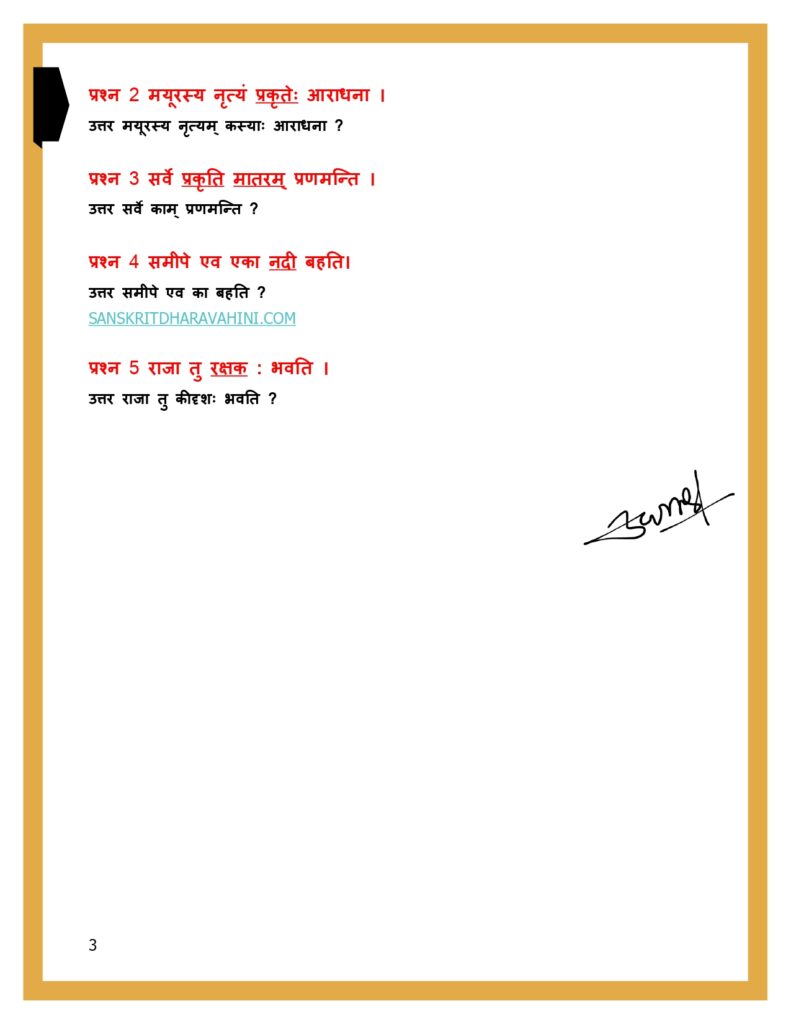 प्रश्न 2 मयूरस्य नृत्यं प्रकृतेः आराधना ।
उत्तर मयूरस्य नृत्यम् कस्याः आराधना ?
प्रश्न 3 सर्वे प्रकृति मातरम् प्रणमन्ति ।
उत्तर सर्वे काम् प्रणमन्ति ?
प्रश्न 4 समीपे एव एका नदी बहति।
उत्तर समीपे एव का बहति ?
SANSKRITDHARAVAHINI.COM
प्रश्न 5 राजा तु रक्षक : भवति ।
उत्तर राजा तु कीदृशः भवति ?
3